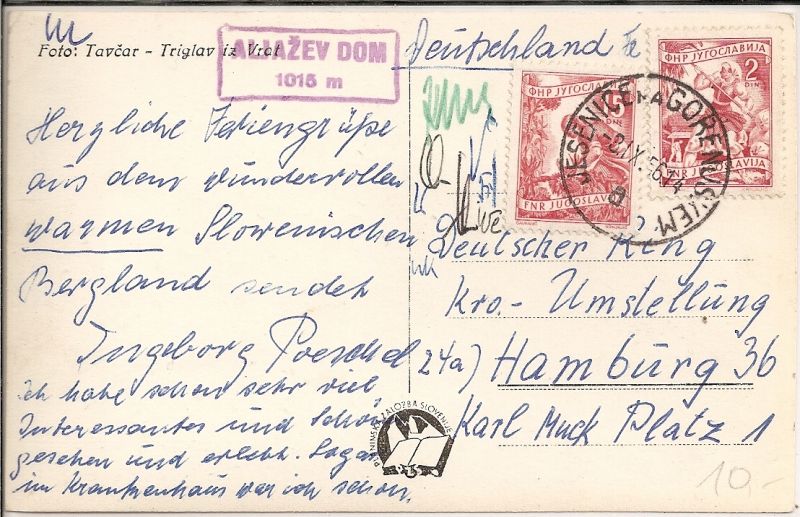 Foto: Tavčar – Triglav iz Vrat
ALJAŽEV DOM
1015 m
Deutschland
ФНР ЈУГОСЛАВИЈА
2
DIN
FNR JUGOSLAVIJA
ФНР ЈУГОСЛАВИЈА
2
DIN
FNR JUGOSLAVIJA
JESENICE NA GORENJSKEM
Herzliche Feriengrüße
aus dem wundervollen
warmen Slowenischen
Bergland sendet
Ingeborg Poeschel
ich habe schon sehr viel
Interessantes und Schön
gesehen und erlebt. Sogar
im Krankenhaus war ich schon.
Deutscher Ring
Kro.- Umstellung
24a) Hamburg 36
Karl Muck Platz 1
PLANINSKA ZALOŽBA SLOVENIJE
10,-